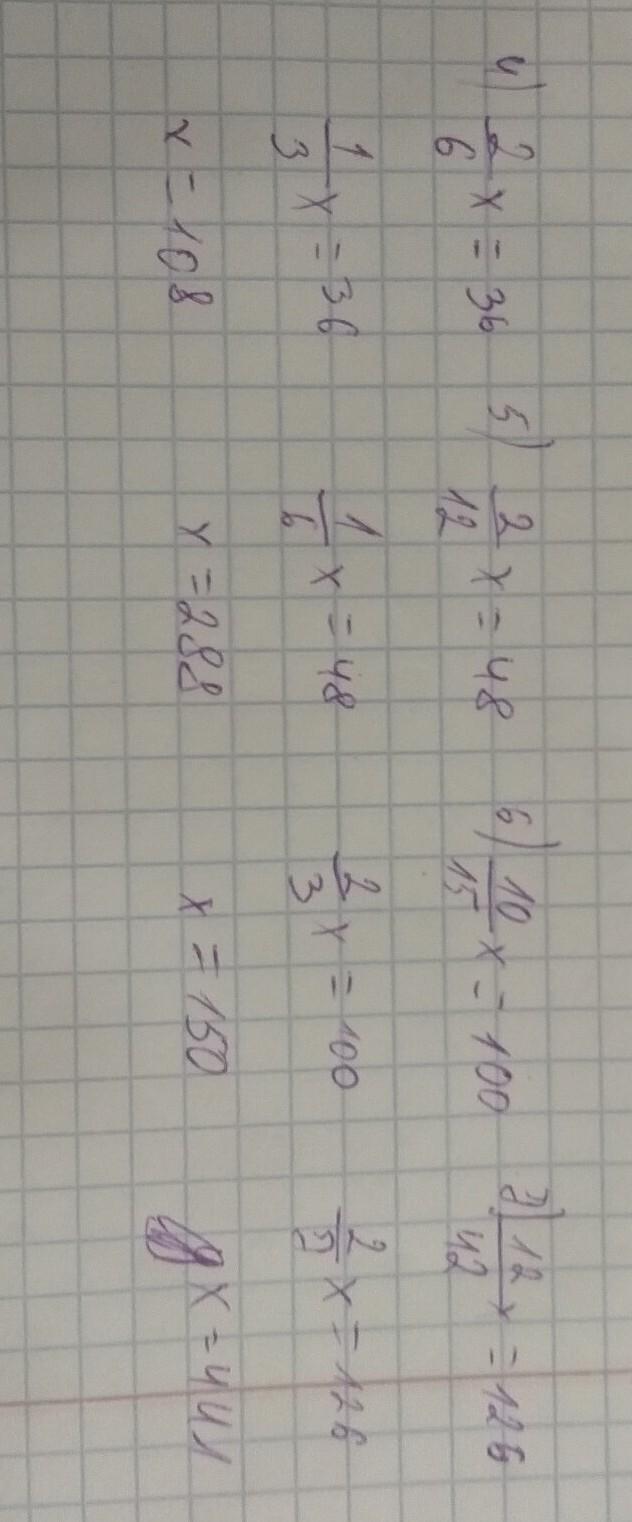 4) 2/6 x = 36 5) 2/12 x = 48 6) 10/15 x = 100 7) 12/42 x = 126
1/3 x = 36 1/6 x = 48 2/3 x = 100 2/7 x = 126
x = 108 x = 288 x = 150 x = 441